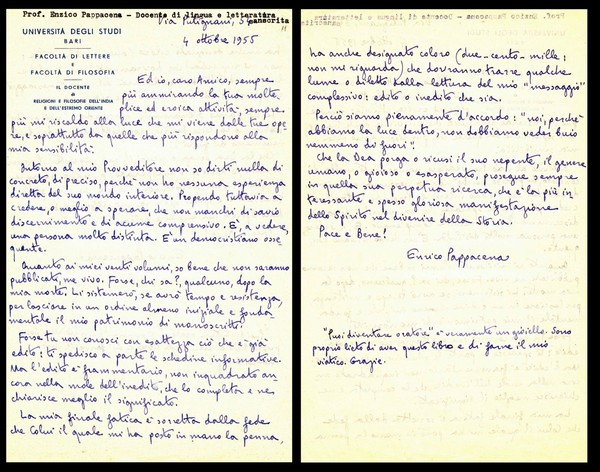 Prof. Enrico Pappacena - Docente di lingua e letteratura sanscrita
Via Putignani,
UNIVERSITÀ DEGLI STUDI
BARI
4 ottobre 1955
FACOLTÀ DI LETTERE
E
FACOLTÀ DI FILOSOFIA
IL DOCENTE
di
RELIGIONI E FILOSOFIE DELL'INDIA
E DELL'ESTREMO ORIENTE
Ed io, caro Amico, sempre
più ammirando la tua molte-
plice ed eroica attività, sempre
più mi riscaldo alla luce che mi viene dalle tue ope-
re, e soprattutto da quelle che più rispondono alla
mia sensibilità.
Intorno al mio Provveditore non so dirti nulla di
concreto, di preciso, perché non ho nessuna esperienza
diretta del suo mondo interiore. Propendo tuttavia a
credere, o meglio a sperare, che non manchi di savio
discernimento e di acume comprensivo. E', a vedere,
una persona molto distinta. E' un democristiano osse-
quente.
Quanto ai miei venti volumi, so bene che non saranno
pubblicati, me vivo. Forse, chi sa?, qualcuno, dopo la
mia morte. Li sistemerò, se avrò tempo e resistenza,
per lasciare in un ordine almeno iniziale e fonda-
mentale il mio patrimonio di manoscritti.
Forse tu non conosci con esattezza ciò che è già
edito: ti spedisco a parte le schedine informative.
Ma l'edito è frammentario, non inquadrato an-
cora nella mole dell'inedito, che lo completa e ne
chiarisce meglio il significato.
La mia finale fatica è sorretta dalla fede
che Colui il quale mi ha posto in mano la penna,
ha anche designato coloro (due - cento - mille:
non mi riguarda) che dovranno trarre qualche
lume o diletto dalla lettura del mio "messaggio"
complessivo: edito o inedito che sia.
Perciò siamo pienamente d'accordo: "noi, perché
abbiamo la luce dentro, non dobbiamo veder buio
nemmeno di fuori".
Che la Dea porga o ricusi il suo nepente, il genere
umano, o gioioso o esasperato, prosegue sempre
in quella sua perpetua ricerca, che è la più in-
teressante e spesso gloriosa manifestazione
dello Spirito nel divenire della Storia.
Pace e Bene!
Enrico Pappacena
"Puoi diventare oratore" è veramente un gioiello. Sono
proprio lieto di aver questo libro e di farne il mio
viatico. Grazie.